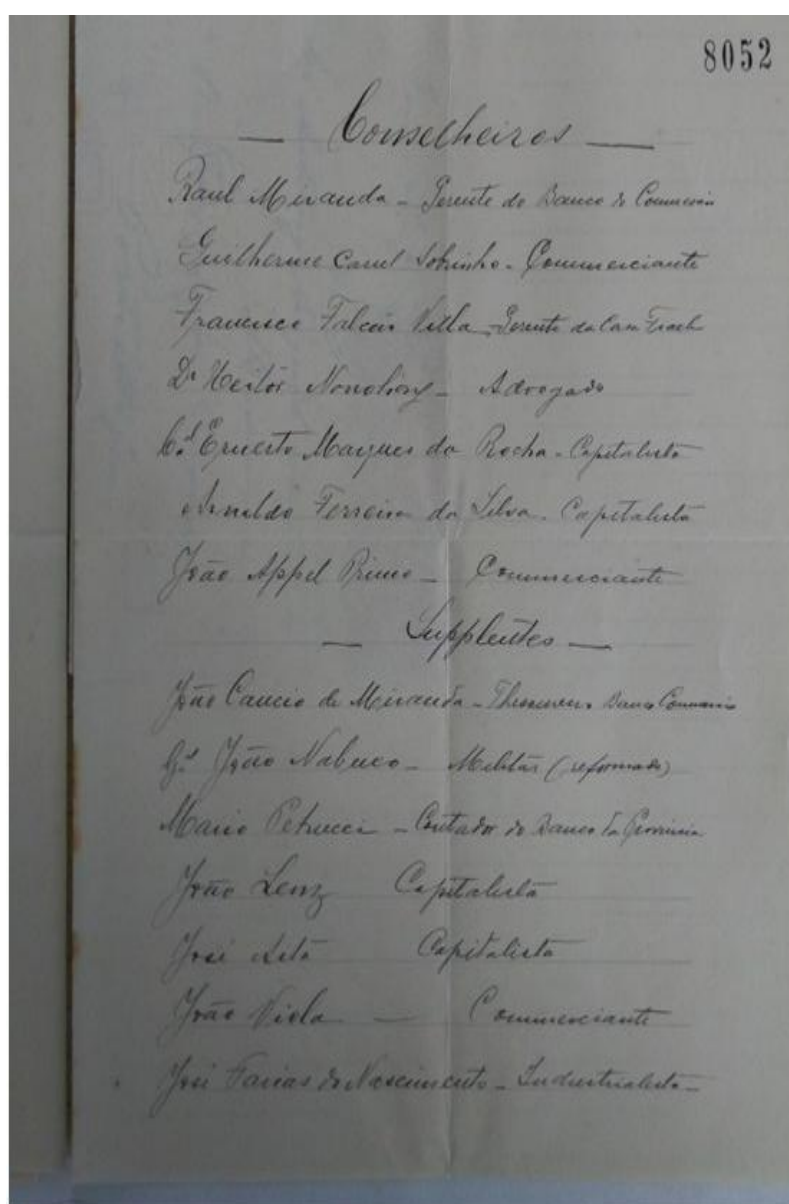 8052
— Conselheiros —
Raul Miranda - Gerente do Banco do Commercio
Guilherme Cassel Sobrinho - Commerciante
Francisco Falcão Villa - Gerente da Casa
Dr Heitor - Advogado
Cel Ernesto Marques da Rocha - Capitalista
Arnaldo Ferreira da Silva - Capitalista
João Appel Primo - Commerciante
— Supplentes —
João Cancio de Miranda - Banco Commercio
João Nabuco - Militar (reformado)
Mario Petrucci - Contador do Banco da Provincia
João Lenz Capitalista
José Capitalista
João Viola — Commerciante
José Farias do Nascimento - Industrialista -